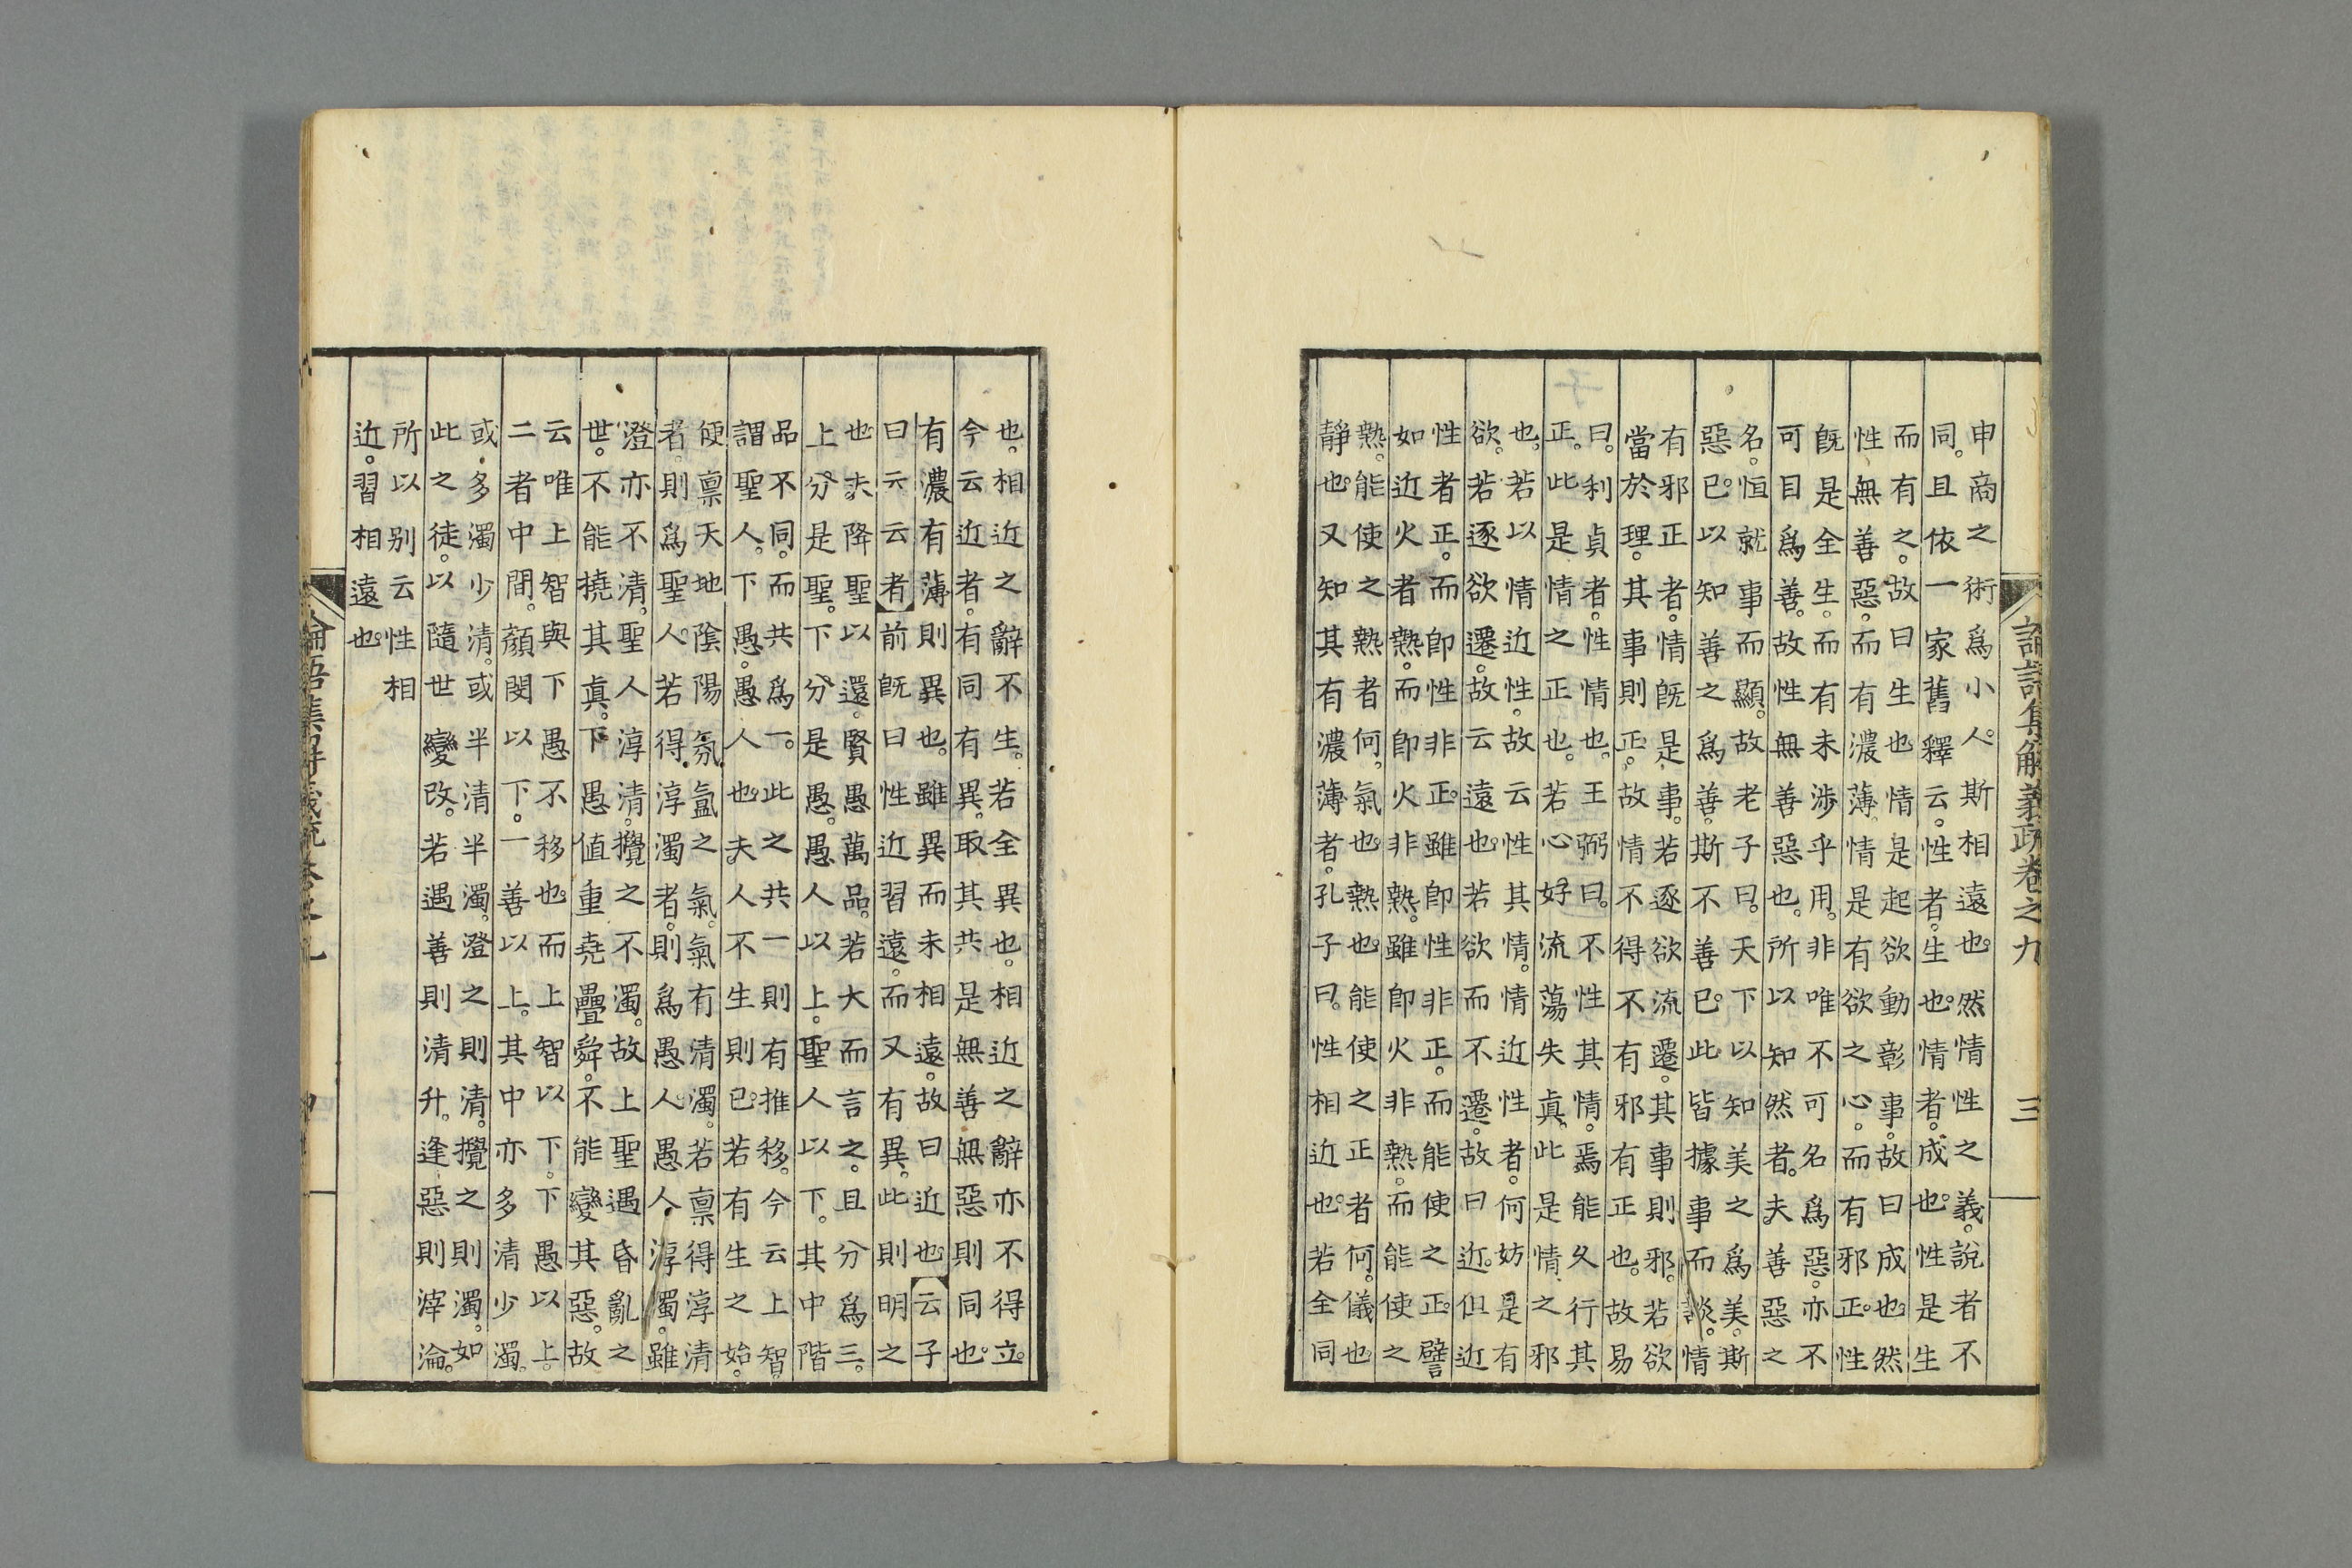 論語集解義疏卷之九
三
申商之術爲小人。斯相遠也。然情性之義。說者不
同。且依一家舊釋云。性者。生也。情者。成也。性是生
而有之。故曰生也。情是起欲動彰事。故曰成也。然
性無善惡。而有濃薄。情是有欲之心。而有邪正。性
旣是全生。而有未涉乎用。非唯不可名爲惡。亦不
可目爲善。故性無善惡也。所以知然者。夫善惡之
名。恒就事而顯。故老子曰。天下以知美之爲美。斯
惡已。以知善之爲善。斯不善已。此皆據事而談。情
有邪正者。情旣是事。若逐欲流遷。其事則邪。若欲
當於理。其事則正。故情不得不有邪有正也。故易
曰。利貞者。性情也。王弼曰。不性其情。焉能久行其
正。此是情之正也。若心好流蕩失眞。此是情之邪
也。若以情近性。故云性其情。情近性者。何妨是有
欲。若逐欲遷。故云遠也。若欲而不遷。故曰近。但近
性者正。而卽性非正。雖卽性非正。而能使之正。譬
如近火者熱。而卽火非熱。雖卽火非熱。而能使之
熱。能使之熱者何。氣也。熱也。能使之正者何。儀也
靜也。又知其有濃薄者。孔子曰。性相近也。若全同
也。相近之辭不生。若全異也。相近之辭亦不得立。
今云近者。有同有異。取其共是無善無惡則同也。
有濃有薄則異也。雖異而未相遠。故曰近也 云子
曰云云者 前旣曰性近習遠。而又有異。此則明之
也。夫降聖以還。賢愚萬品。若大而言之。且分爲三。
上分是聖。下分是愚。愚人以上。聖人以下。其中階
品不同。而共爲一。此之共一則有推移。今云上智。
謂聖人。下愚。愚人也。夫人不生則已。若有生之始。
便禀天地陰陽氛氳之氣。氣有清濁。若禀得淳清
者。則爲聖人。若得淳濁者。則爲愚人。愚人淳濁。雖
澄亦不清。聖人淳清。攪之不濁。故上聖遇昏亂之
世。不能撓其眞。下愚値重堯疊舜。不能變其惡。故
云唯上智與下愚不移也。而上智以下。下愚以上。
二者中間。顏閔以下。一善以上。其中亦多清少濁。
或多濁少清。或半清半濁。澄之則清。攪之則濁。如
此之徒。以隨世變改。若遇善則清升。逢惡則滓淪。
所以别云性相
近。習相遠也。